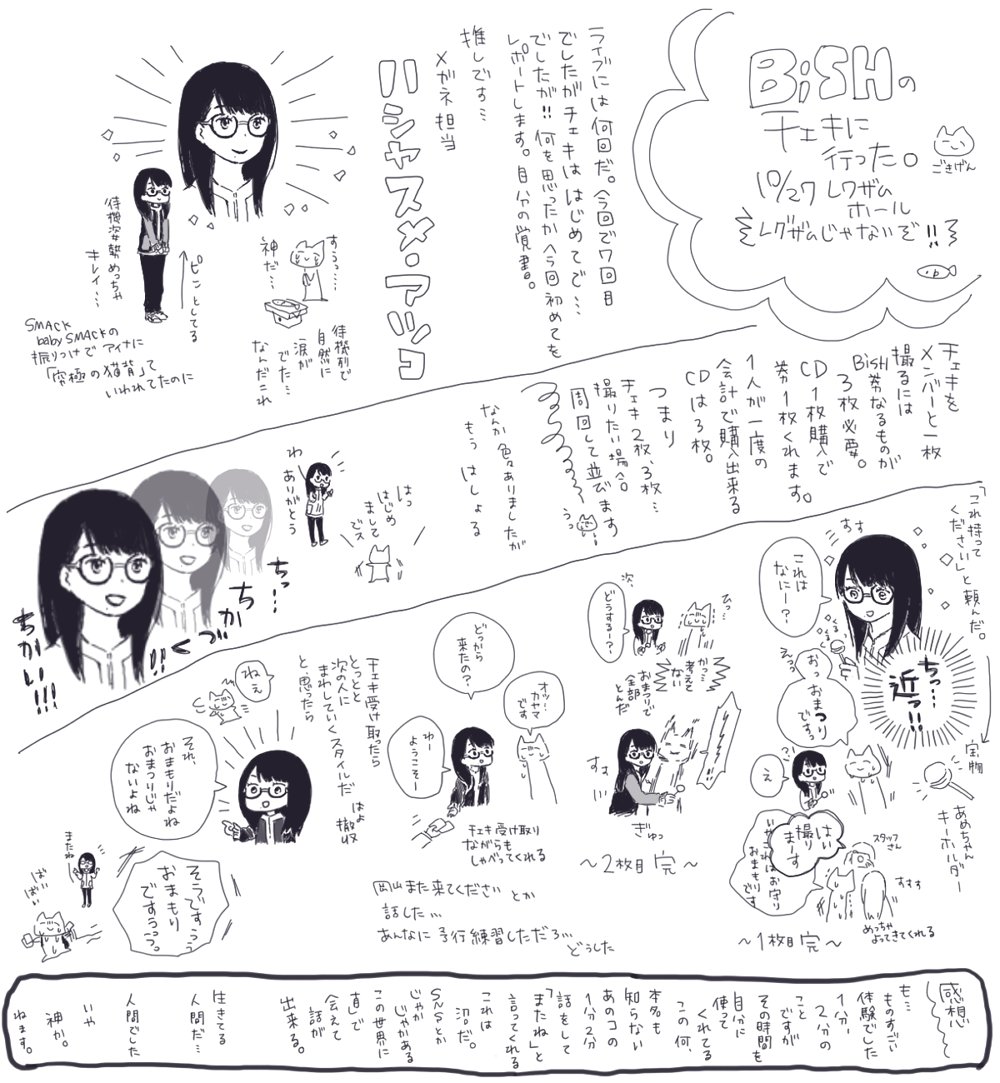 BiSHの
チェキに
行った。
10/27 レクザム
ホール
レグザムじゃないぞ!!
ごきげん
ライブには何回だ。今回で7回目
でしたがチェキははじめてで…
でしたが!!何を思ったか今回初めてを
レポートします。自分の覚書。
推しです…
メガネ担当
ハシヤスメ・アツコ
待機姿勢めっちゃ
キレイ…
ピンとしてる
SMACK
baby SMACKの
振りつけでアイナに
「究極の猫背」て
いわれてたのに
すうっ…
神だ…
待機列で
自然に
涙が
でた…
なんだこれ
チェキを
メンバーと一枚
撮るには
BiSH券なるものが
3枚必要。
CD1枚購入で
券1枚くれます。
1人が一度の
会計で購入出来る
CDは3枚。
つまり
チェキ2枚、3枚…
撮りたい場合。
周回して並びます
うっ
なんか色々ありましたが
もうはしょる
はっ
はじめ
まして
でス
わー
ありがとう
ちっ…
ちか
づく!!
ちかい!!!
「これ持って
ください」と頼んだ。
すす
これは
なにー?
くるくる
ちっ…
近っ!!
えっっ
おっおまつり
です。
宝物
あめちゃん
キーホルダー
え
?!
スタッフ
さん
はい
撮り
まーす
いやこれはお守り
おまもりです
すすす
めっちゃ
よってきてくれる
〜1枚目完〜
次
どうするー?
ひっ
かっ…
考えて
ない
おまつりで
全部
とんだ
すす
ぎゅっ
〜2枚目完〜
どっから
来たの?
オッ…カヤマ
です
わー
ようこそー
チェキ受け取り
ながらも
しゃべってくれる
岡山また来てください とか
話した…
あんなに予行練習しただろ…
どうした
チェキ受け取ったら
とっとと
次の人に
まわしていくスタイルだ
と思ったら
はよ
撤収
ねえ
それ、
おまもりだよね
おまつりじゃ
ないよね
そうですっっ
おまもり
ですうっっ。
またね
ばいばい
感想
も…
ものすごい
体験でした
1分、
2分の
こと
ですが
その時間を
自分に
使って
くれてる
この何、
本名も
知らない
あのコの
1分2分
話をして
「またね」と
言ってくれる
これは
沼だ。
SNSとか
じゃか
じゃかある
この世界に
直で
会えて
話が
出来る。
生きてる
人間だ…
人間でした
いや
神か。
ねます。